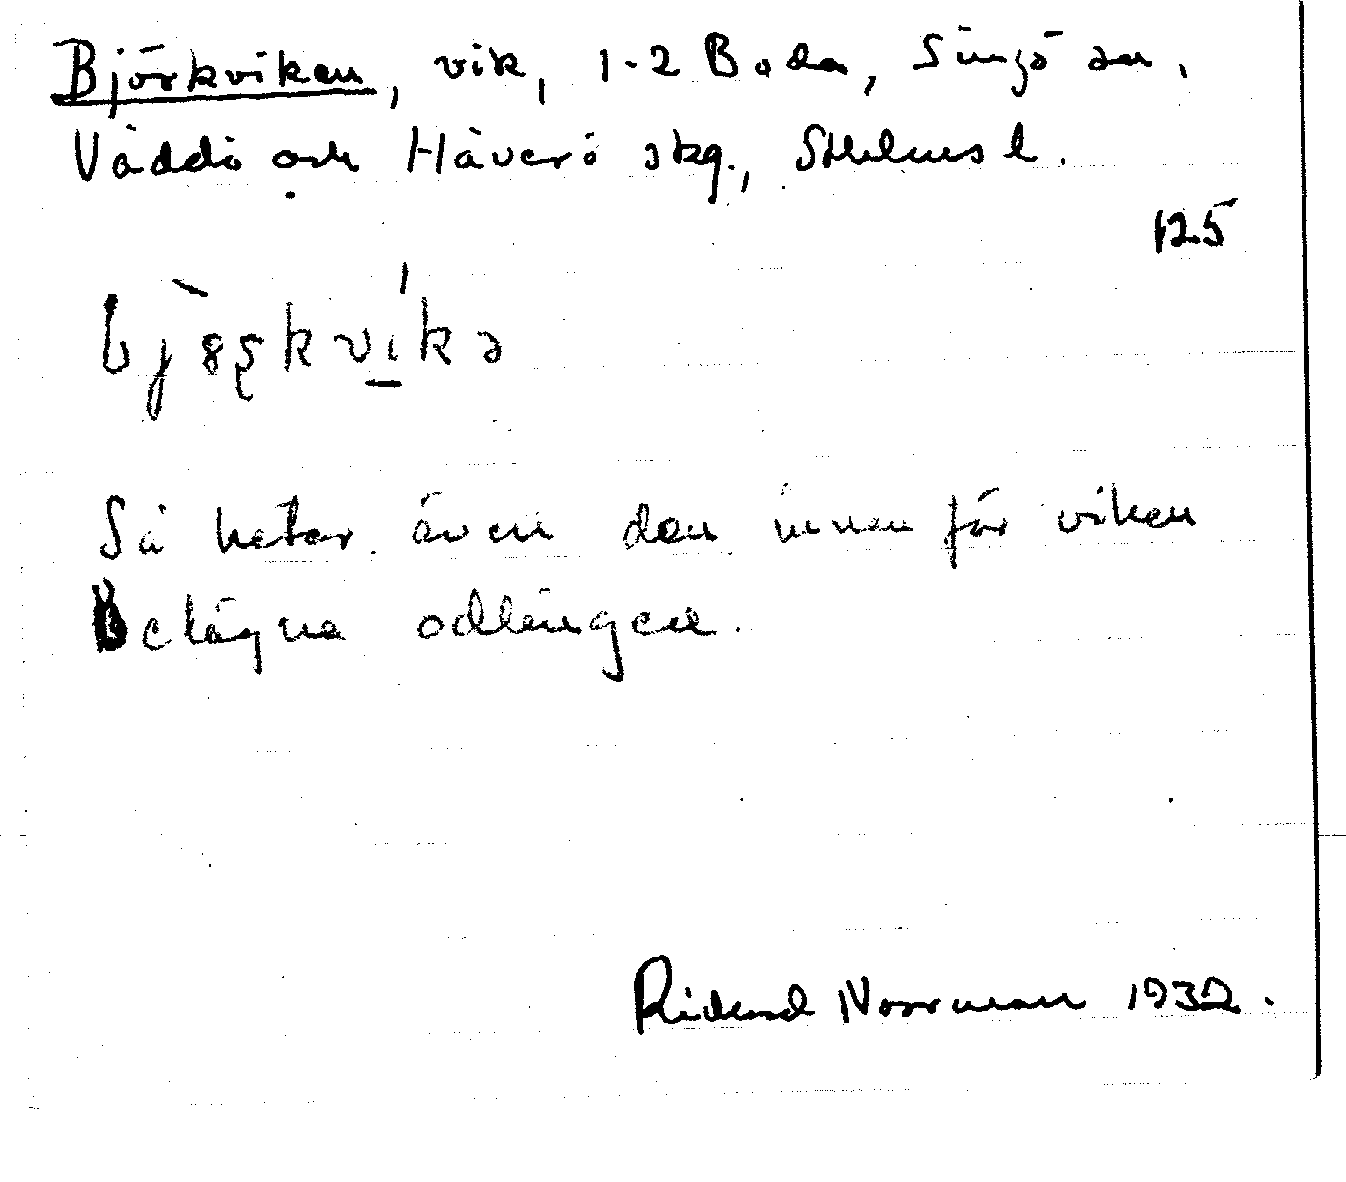 Björkviken, vik, 1-2 Boda, Singö sn,
Väddö och Häverö skg., Sthlms l.
125
Så heter även den innanför viken
belägna odlingen.
Rickard Norrman 1932.